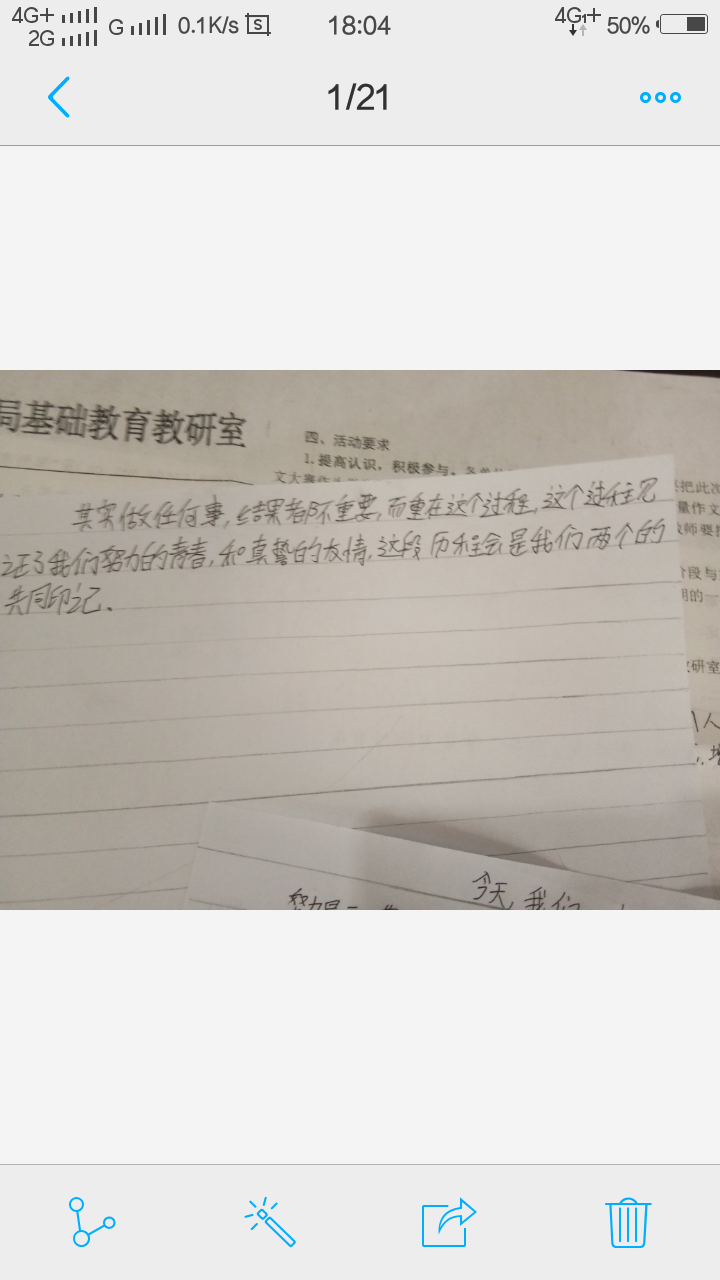 4G+
2G
G
0.1K/s
S
18:04
4G+
50%
1/21
局基础教育教研室
四、活动要求
1.提高认识，积极参与。
文大赛
把此次
量作文
教师要
阶段与
用的一
教研室
人
其实做任何事,结果都不重要,而重在这个过程,这个过程见
证了我们努力的青春,和真挚的友情,这段历程会是我们两个的
共同印记、
今天,我们
努力是一